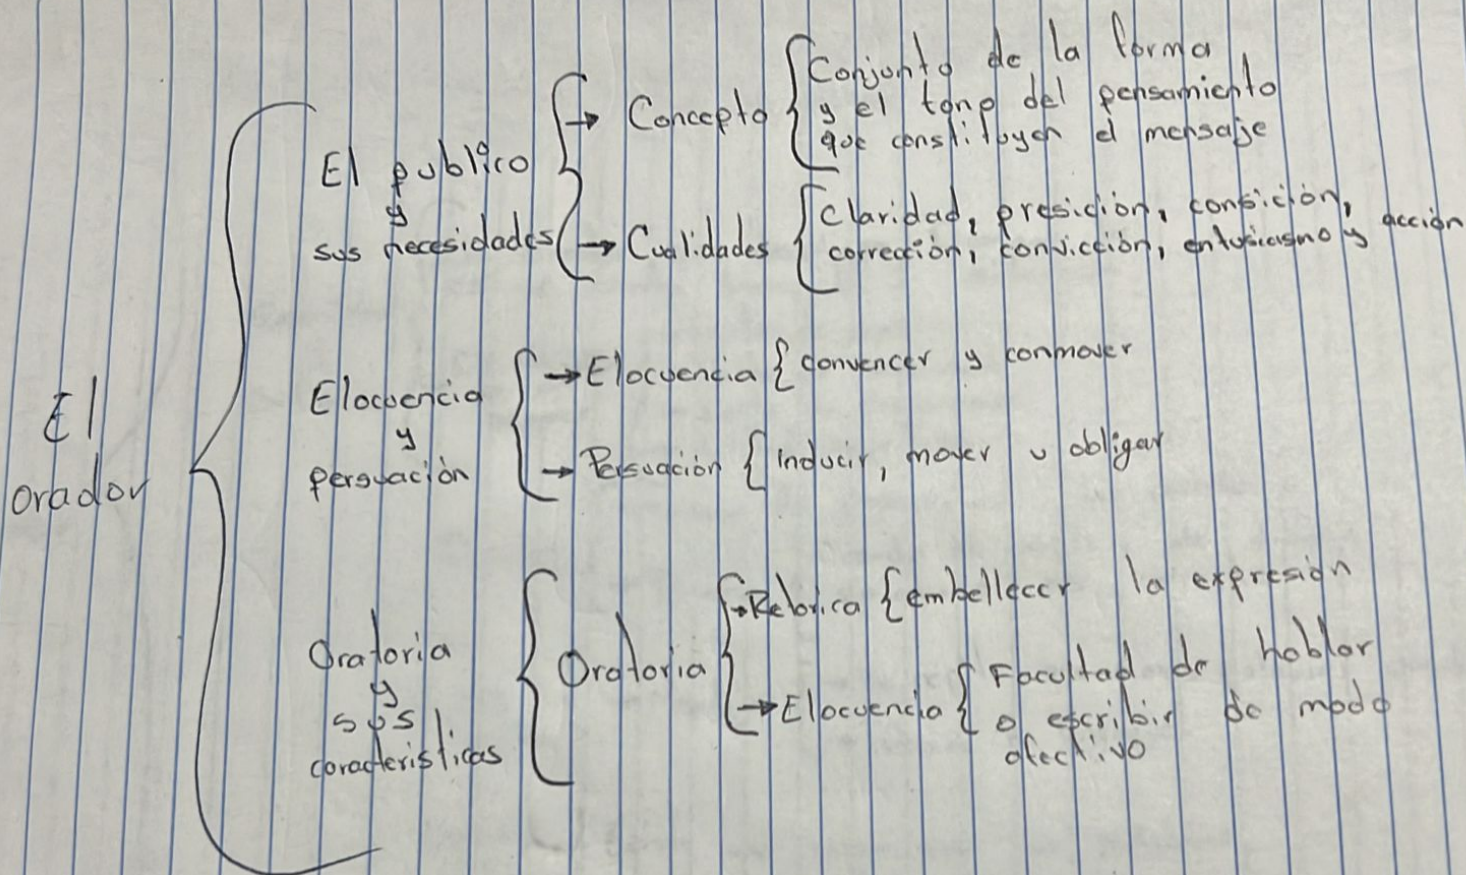 El
orador
El publico
y
sus necesidades
→ Concepto
Conjunto de la forma
y el tono del pensamiento
que constituyen el mensaje
→ Cualidades
Claridad, presición, consición,
corrección, convicción, entusiasmo y acción
Elocuencia
y
persuación
→ Elocuencia { convencer y conmover
→ Persuación { inducir, mover u obligar
Oratoria
y
sus
caracteristicas
Oratoria
→ Retorica { embellecer la expresión
→ Elocuencia { Facultad de hablar
o escribir de modo
efectivo